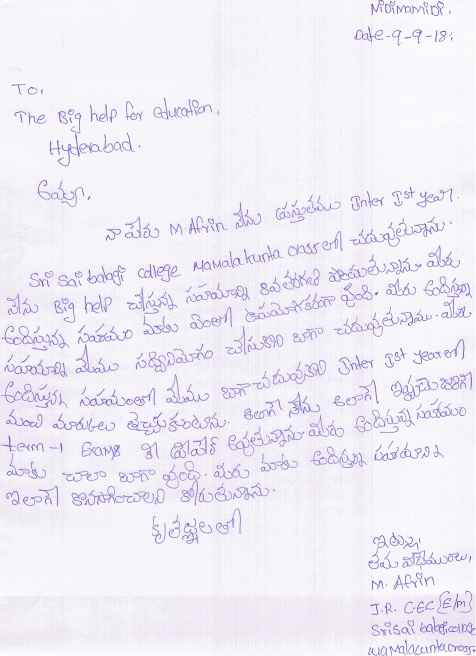 NiDiMAMiDi.
Date-9-9-18;
To,
The Big help for education,
Hyderabad.
అమ్మా,
నా పేరు M.Afrin నేను ప్రస్తుతము Inter Ist year.
Sri Sai balaji college Mamalakunta crossలో చదువుతున్నాను.
నేను Big help చేస్తున్న సహాయాన్ని 8వ తరగతి పొందుతున్నాను. మీరు
అందిస్తున్న సహాయం మాకు ఎంతో ఉపయోగకరంగా వుంది. మీరు అందిస్తున్న
సహాయాన్ని మేము సద్వినియోగం చేసుకొని బాగా చదువుతున్నాము. మీరు
అందిస్తున్న సహాయంతో మేము బాగా చదువుకొని Inter Ist yearలో
మంచి మార్కులు తెచ్చుకుంటును. అలాగే నేను అలాగే ఇప్పుడు జరిగే
term-1 Exams కి ప్రిపేర్ అవుతున్నాను. మీరు అందిస్తున్న సహాయం
మాకు చాలా బాగా వుంది. మీరు మాకు అందిస్తున్న సహాయాన్ని
ఇలాగే కొనసాగించాలని కోరుతున్నాను.
కృతజ్ఞలతో
ఇట్లు,
తమ విధేయురాలు,
M. Afrin
J.R. C.E.C [E/m]
Srisai balaji clg
Mamalakuntacross.